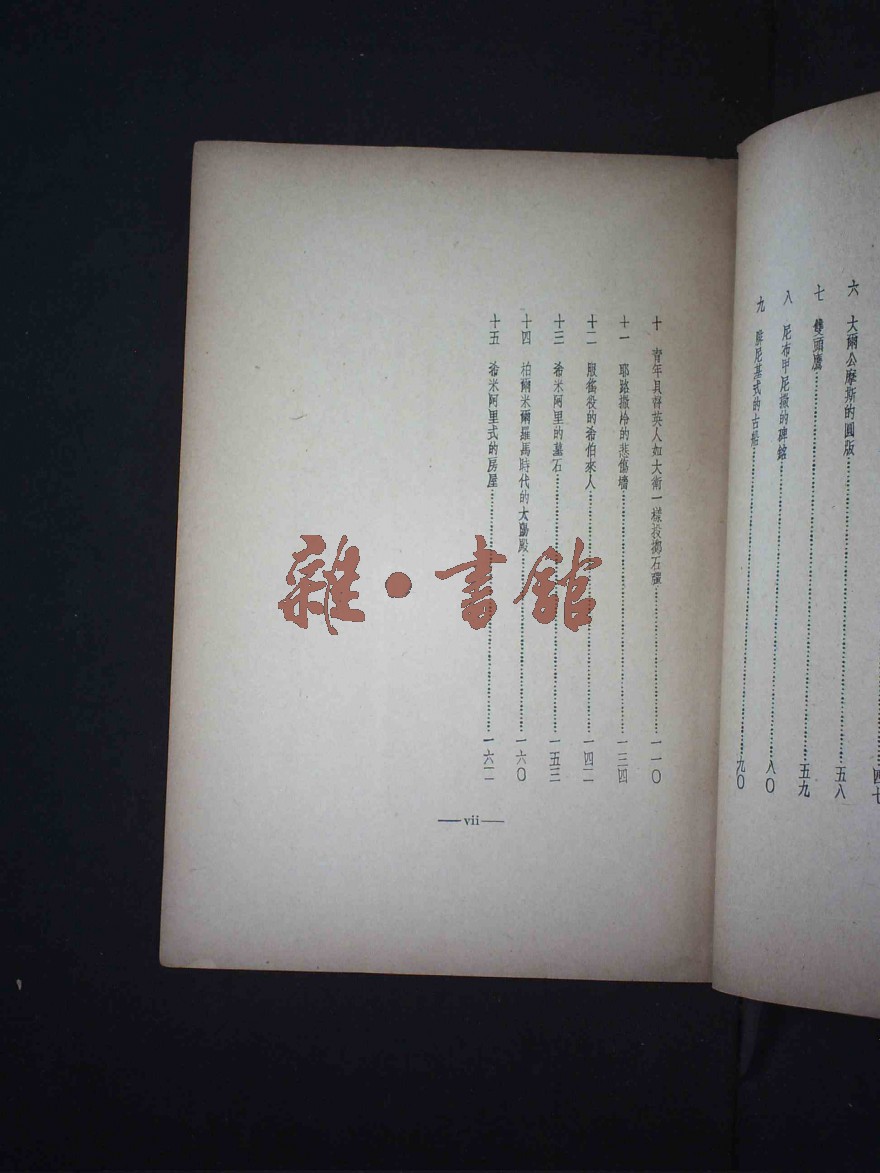 四七
六 大爾公摩斯的圓版……五八
七 雙頭鷹……五九
八 尼布甲尼撒的碑銘……八〇
九 腓尼基式的古船……九〇
十 青年貝督英人如大衛一樣投擲石彈……一一〇
十一 耶路撒冷的悲傷墻……一三四
十二 服舊役的希伯來人……一四二
十三 希米阿里的墓石……一五三
十四 柏爾米爾羅馬時代的太陽殿……一六〇
十五 希米阿里式的房屋……一六二
—vii—
雜·書館